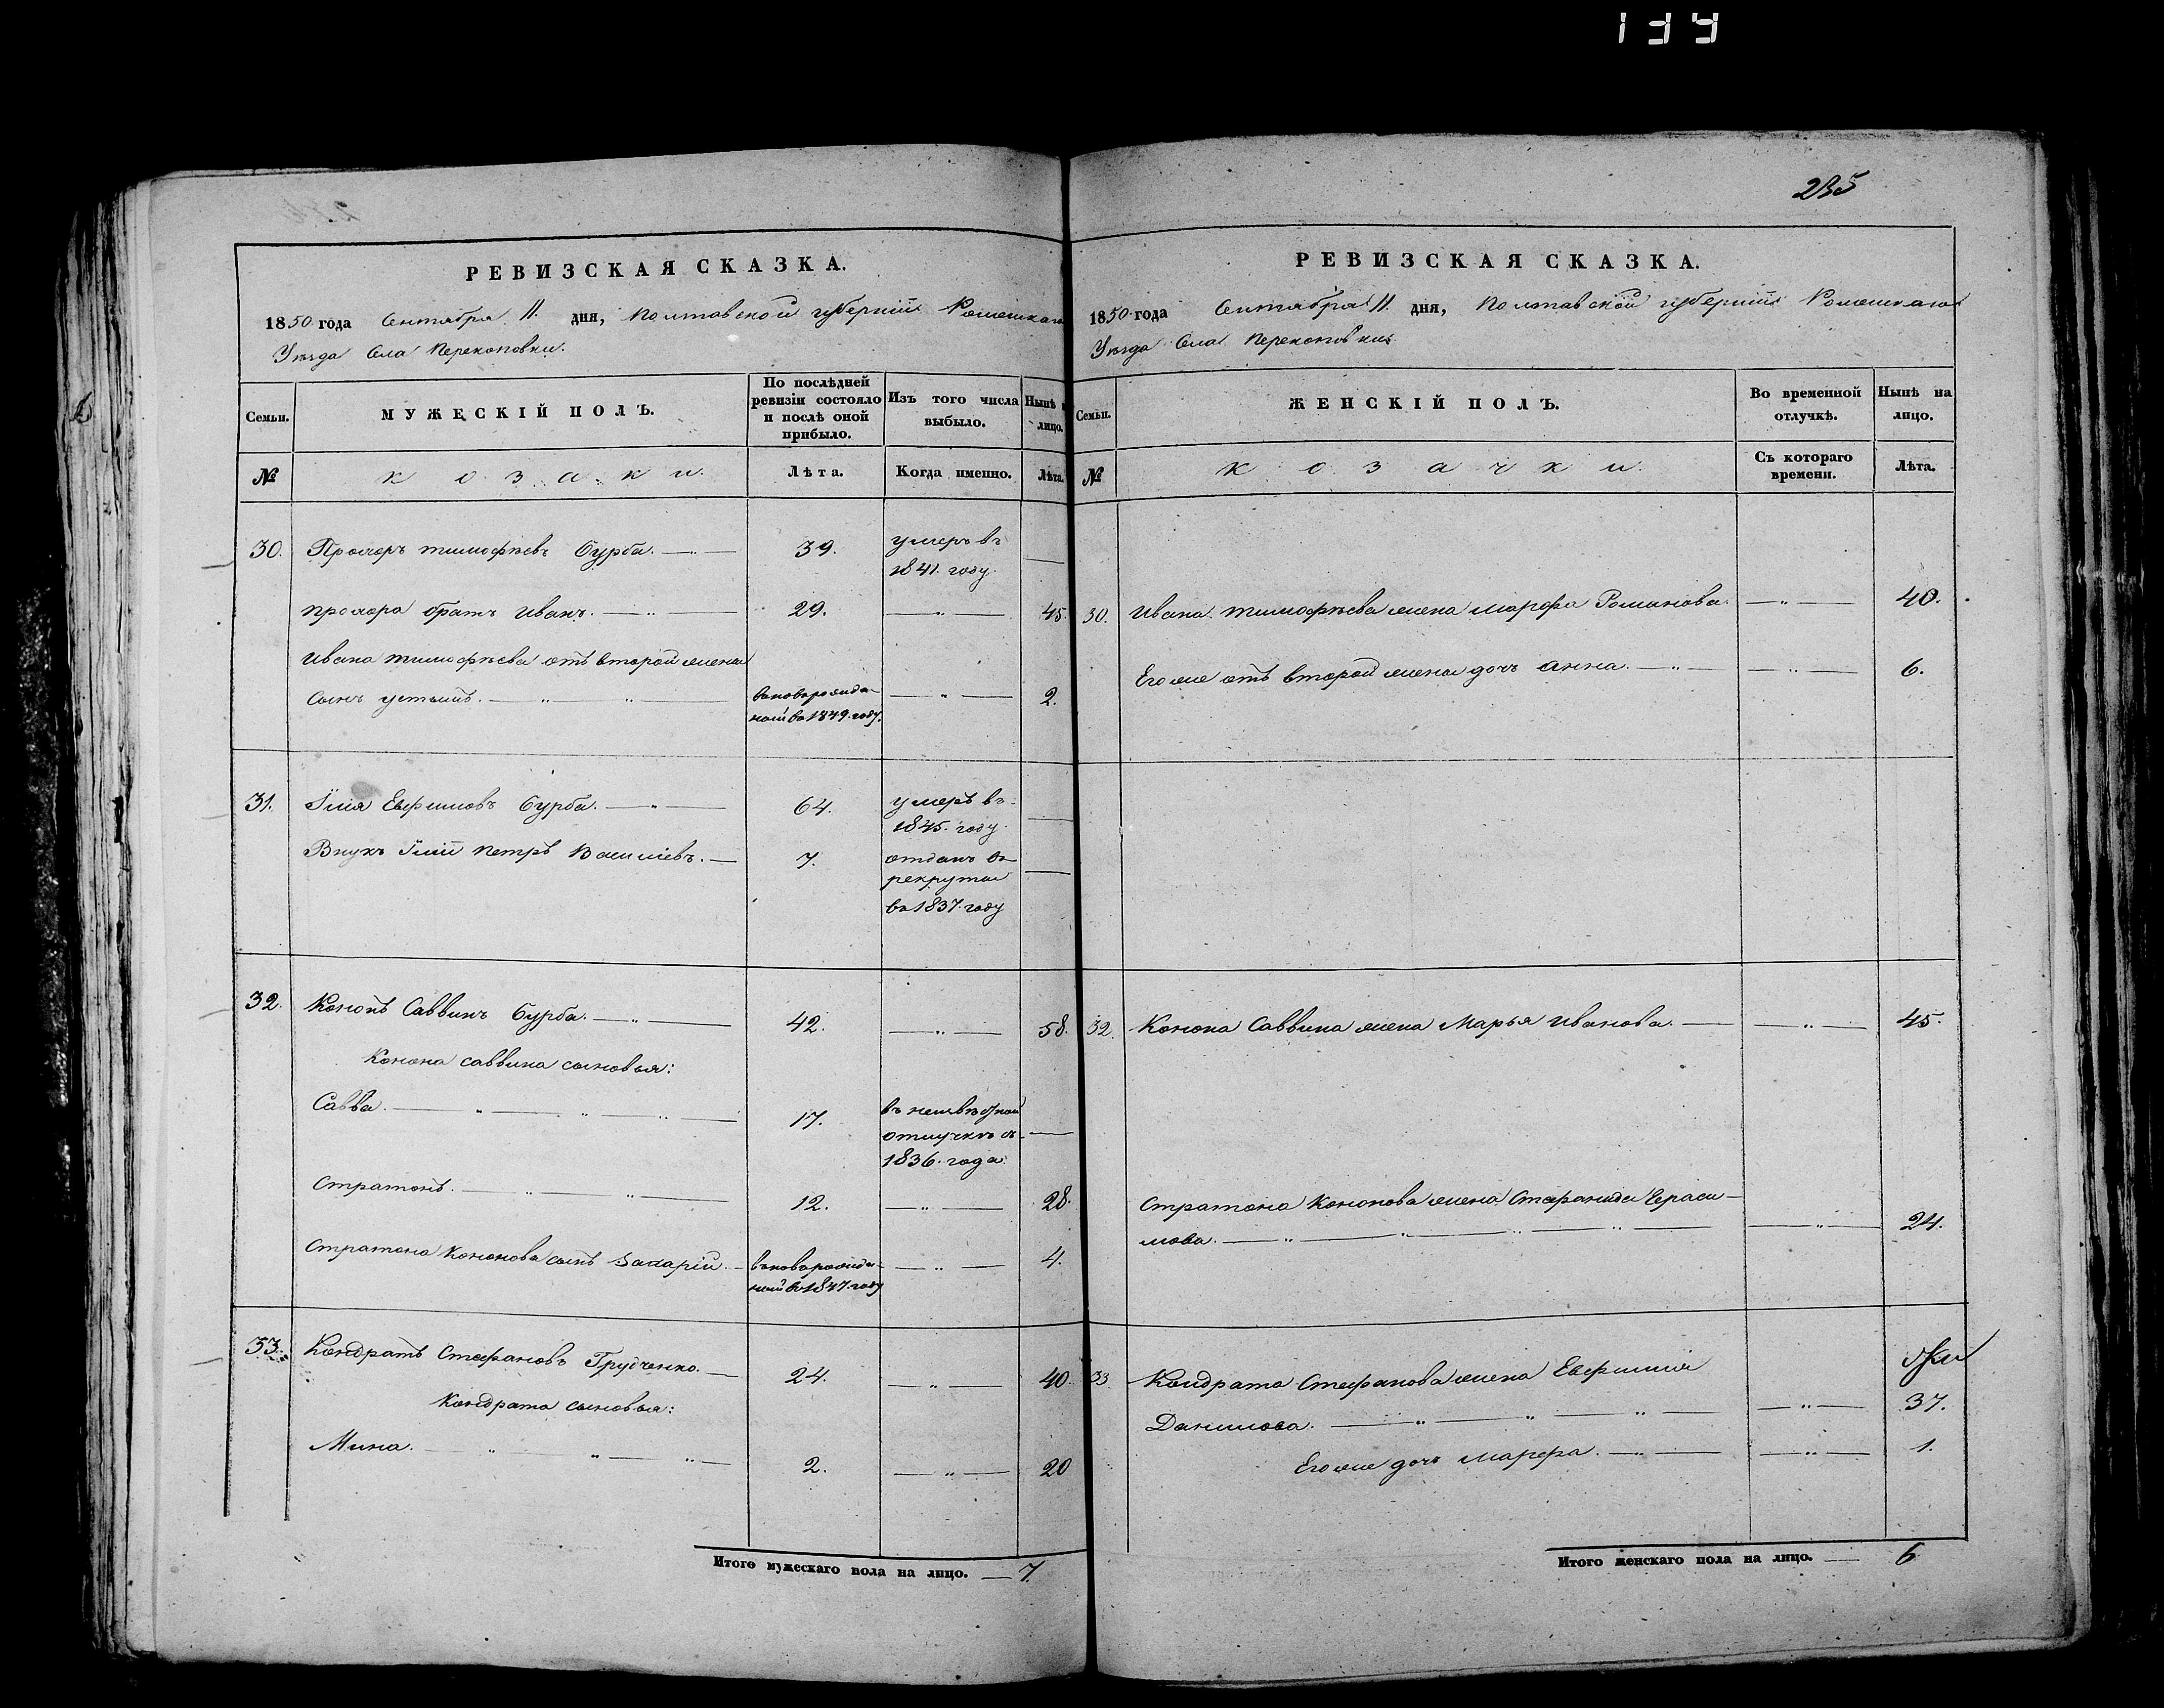 134
235
РЕВИЗСКАЯ СКАЗКА.
1850 года Сентября 11. дня, Полтавской губернии Роменскаго
Уезда Села Перекоповки.
Семьи.
МУЖЕСКІЙ ПОЛЪ.
По послѣдней
ревизіи состояло
и послѣ оной
прибыло.
Изъ того числа
выбыло.
Нынѣ
лицо.
№
козаки.
Лѣта.
Когда именно.
Лѣта.
30. Прохоръ тимофѣевъ Бурба. 39. умеръ въ
1841. году.
прохора братъ иванъ. 29. 45.
ивана тимофѣева отъ второй жены
сынъ устинъ. вновь рожде-
ный въ 1849. году. 2.
31. Илія Евфимовъ Бурба. 64. умеръ въ
1845. году.
Внукъ Иліи петръ Василіевъ. 7. отданъ въ
рекруты
въ 1837. году
32. Кононъ Саввинъ Бурба. 42. 58.
Конона саввина сыновья:
Савва. 17. въ неизвѣстной
отлучкѣ съ
1836. года.
Стратонъ. 12. 28.
Стратона Кононова сынъ Захарій. вновь рожде-
ный въ 1847. году 4.
33. Кондратъ Стефановъ Грудченко. 24. 40.
Кондрата сыновья:
Мина. 2. 20
Итого мужескаго пола на лицо. 7.
РЕВИЗСКАЯ СКАЗКА.
1850 года Сентября 11. дня, Полтавской губерніи Роменскаго
Уезда Села Перекоповки
Семьи.
ЖЕНСКІЙ ПОЛЪ.
Во временной
отлучкѣ.
Нынѣ на
лицо.
№
козачки.
Съ котораго
времени.
Лѣта.
30. Ивана тимофѣева жена марфа Романова. 40.
Его же отъ второй жены дочь анна. 6.
32. Конона Саввина жена Марья иванова. 45.
Стратона Кононова жена Стефанида Гераси-
мова. 24.
33. Кондрата Стефанова жена Евфимия
Данилова. 37.
Его же дочь марфа. 1.
Итого женскаго пола на лицо. 6